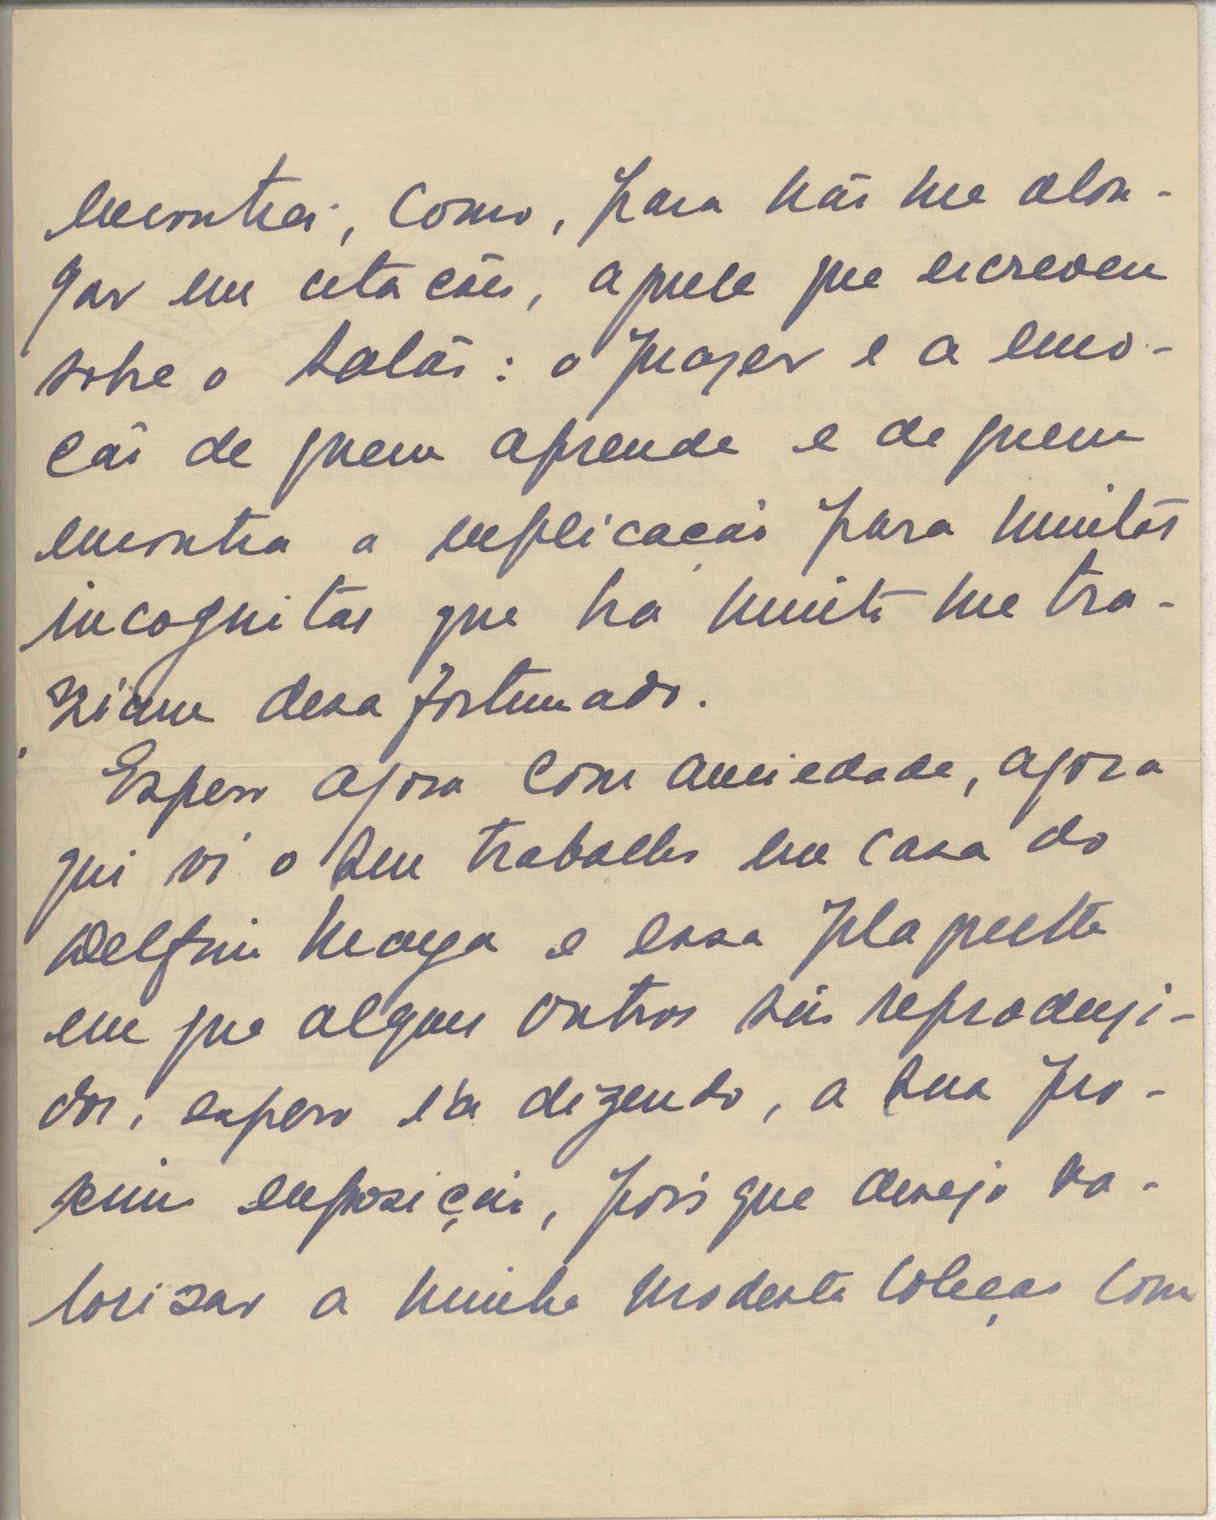 encontrei, como, para não me alon-
gar em citações, aquele que escreveu
sobre o Salão: o prazer e a emo-
ção de quem aprende e de quem
encontra a explicação para muitas
incognitas que ha muito me tra-
ziam desafortunado.
Espero agora com anciedade, agora
que vi o seu trabalho em casa do
Delfim Maya e essa plaquette
em que alguns outros são reproduzi-
dos, espero ia dizendo, a sua pro-
xima exposição, pois que desejo va-
lorisar a minha modesta coleção com